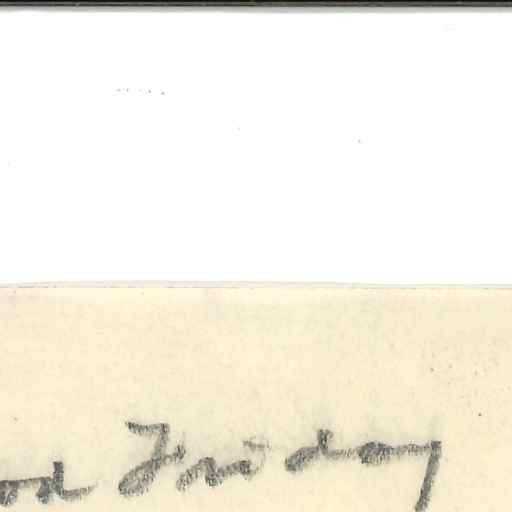 od Friday